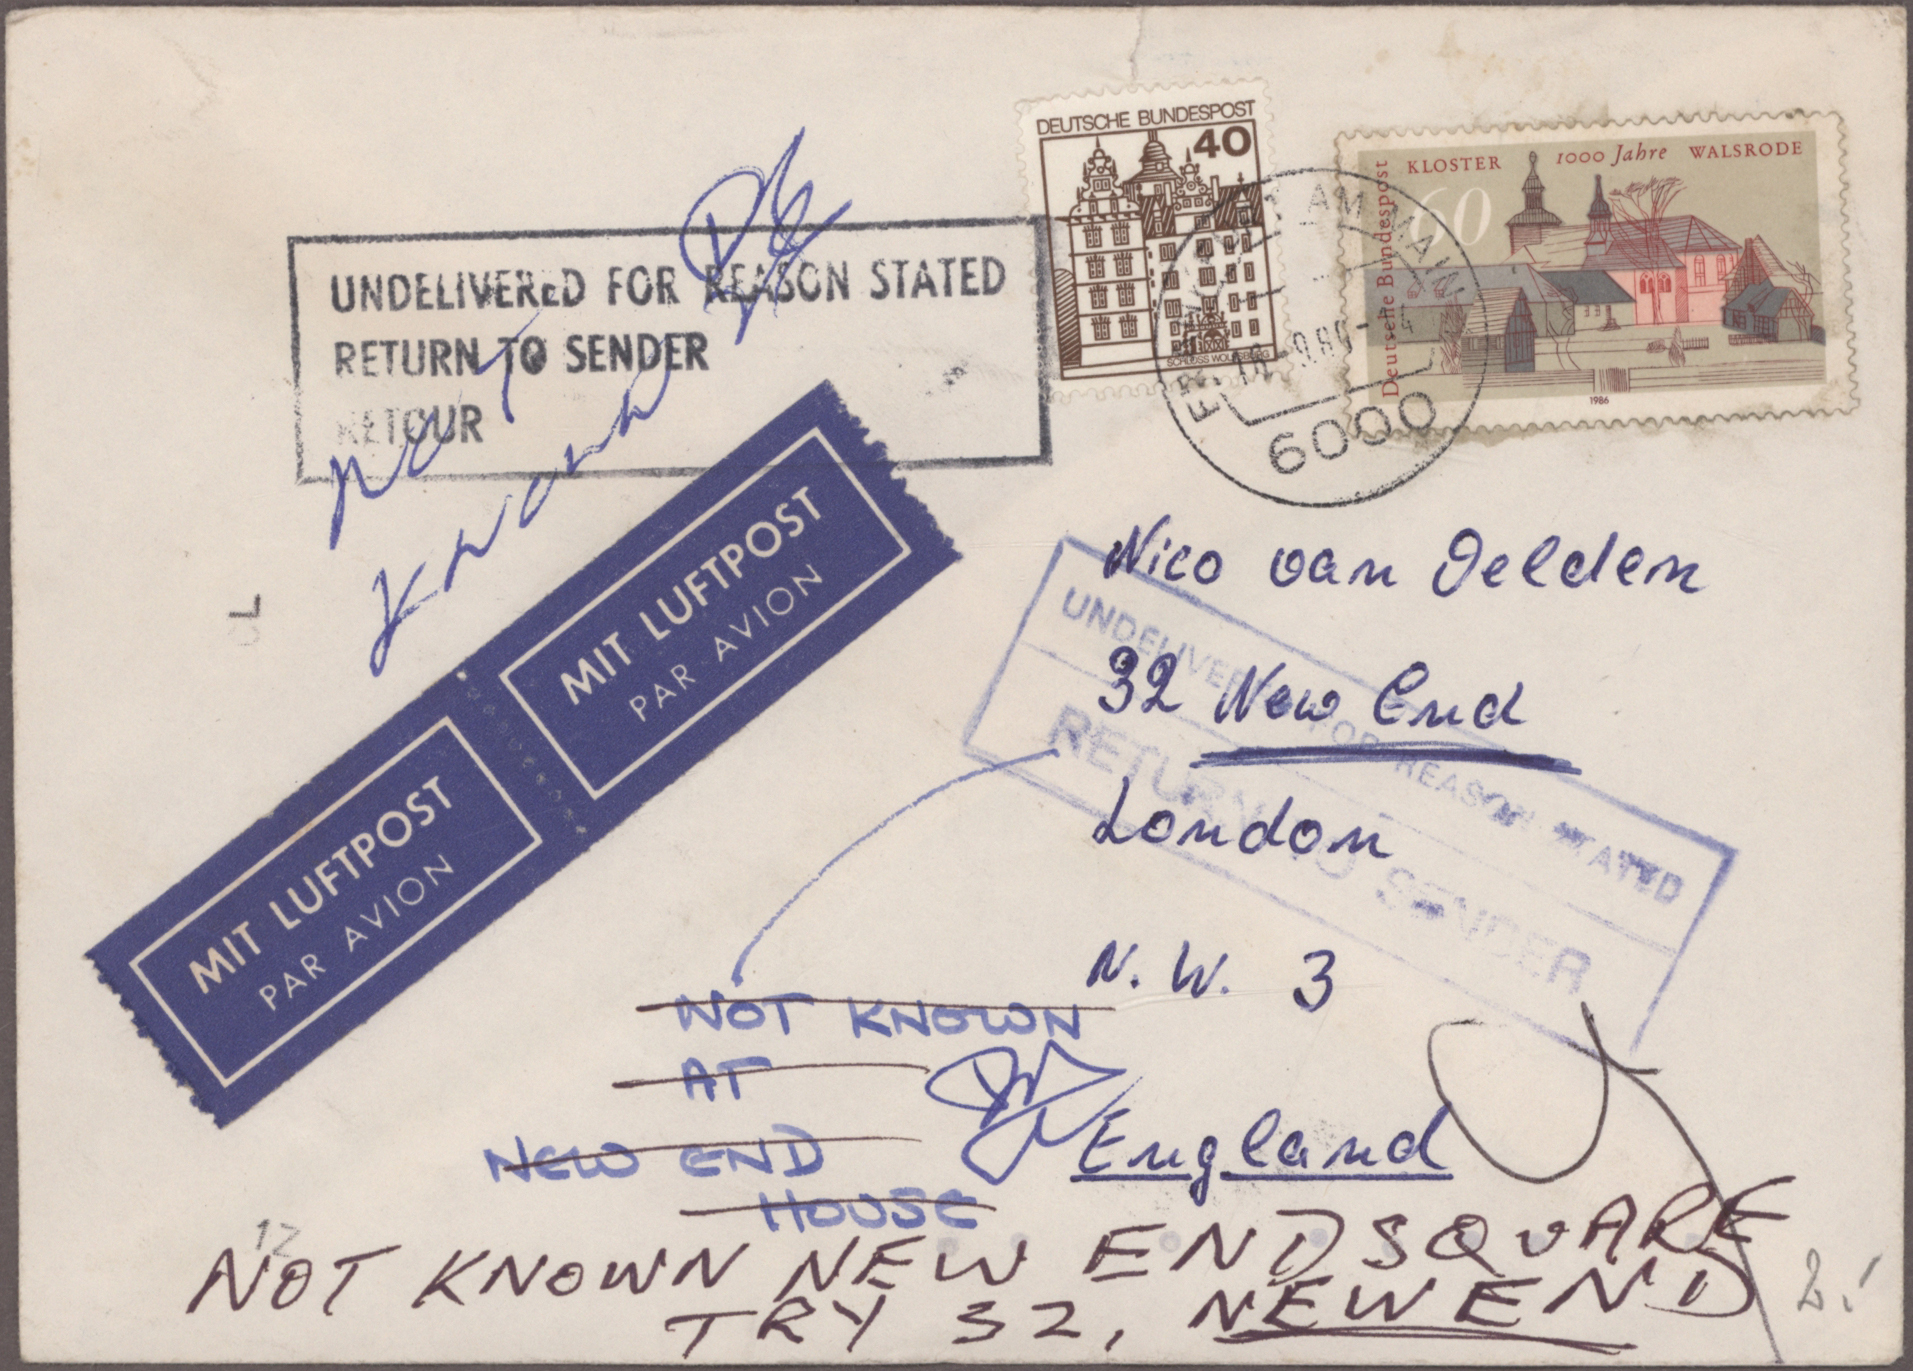 DEUTSCHE BUNDESPOST
40
SCHLOSS WOLFSBURG
KLOSTER 1000 Jahre WALSRODE
60
Deutsche Bundespost
1986
AM MAIN
6000
UNDELIVERED FOR REASON STATED
RETURN TO SENDER
RETOUR
NOT
Known
MIT LUFTPOST
PAR AVION
MIT LUFTPOST
PAR AVION
Nico van Oelden
32 New End
London
N. W. 3
England
UNDELIVERED FOR REASON STATED
RETURN TO SENDER
NOT KNOWN
AT
NEW END
HOUSE
12
NOT KNOWN NEW END SQUARE
TRY 32, NEW END
2.!